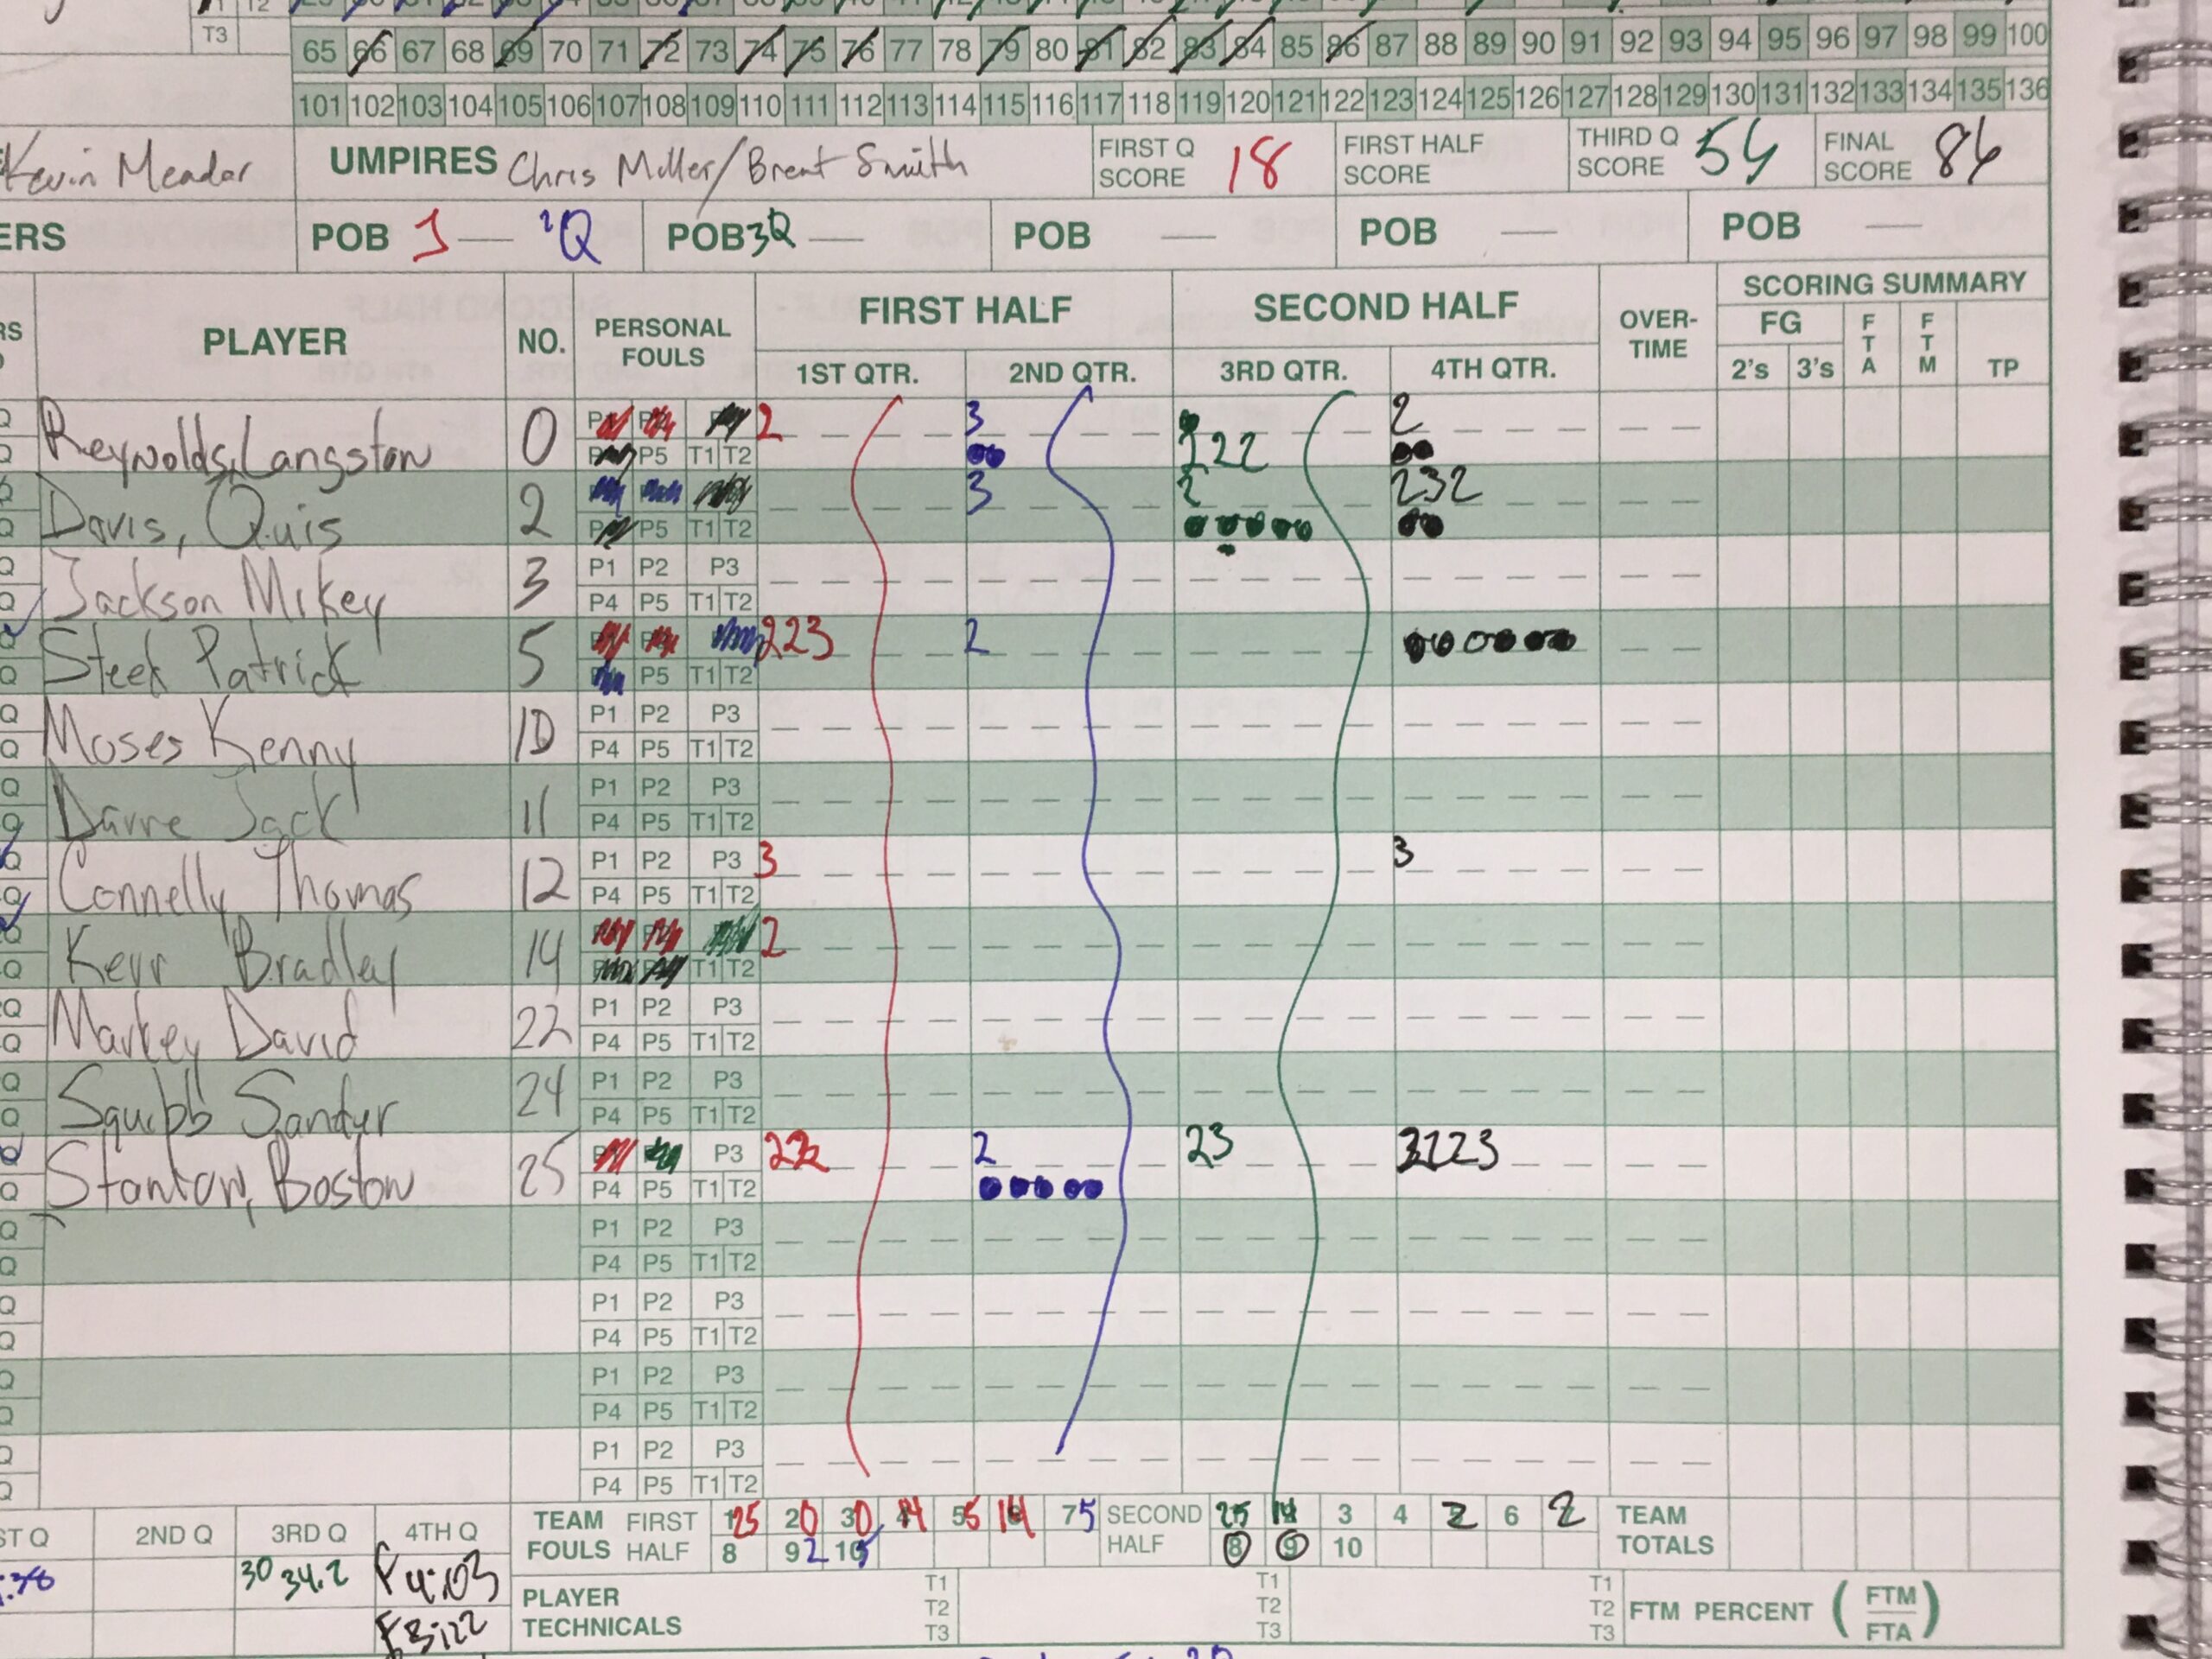 T3
65 66 67 68 69 70 71 72 73 74 75 76 77 78 79 80 81 82 83 84 85 86 87 88 89 90 91 92 93 94 95 96 97 98 99 100
101 102 103 104 105 106 107 108 109 110 111 112 113 114 115 116 117 118 119 120 121 122 123 124 125 126 127 128 129 130 131 132 133 134 135 136
Kevin Meador UMPIRES Chris Miller/Brent Smith FIRST Q SCORE 18 FIRST HALF SCORE THIRD Q SCORE 54 FINAL SCORE 86
ERS POB 1 — 2Q POB 3Q — POB — POB — POB —
PLAYER NO. PERSONAL FOULS FIRST HALF SECOND HALF OVER-TIME SCORING SUMMARY
1ST QTR. 2ND QTR. 3RD QTR. 4TH QTR. FG 2's 3's FTA FTM TP
Reynolds, Langston 0 2 3 2
P5 T1 T2 222
Davis, Quis 2 3 2 232
P5 T1 T2
Jackson Mikey 3 P1 P2 P3
P4 P5 T1 T2
Steek Patrick 5 223 2
P5 T1 T2
Moses Kenny 10 P1 P2 P3
P4 P5 T1 T2
Darre Jack 11 P1 P2 P3
P4 P5 T1 T2
Connelly Thomas 12 P1 P2 P3 3 3
P4 P5 T1 T2
Kerr Bradley 14 2
T1 T2
Markey David 22 P1 P2 P3
P4 P5 T1 T2
Squibb Sandur 24 P1 P2 P3
P4 P5 T1 T2
Stanton, Boston 25 P3 222 2 23 2223
P4 P5 T1 T2
P1 P2 P3
P4 P5 T1 T2
P1 P2 P3
P4 P5 T1 T2
P1 P2 P3
P4 P5 T1 T2
P1 P2 P3
P4 P5 T1 T2
ST Q 2ND Q 3RD Q 4TH Q
30 34.2 F 4:03
F 3:22
TEAM FOULS FIRST HALF 1 25 2 0 3 0 4 14 5 5 6 14 7 5 SECOND HALF 25 14 3 4 2 6 2 TEAM TOTALS
8 9 2 10 5 8 9 10
PLAYER TECHNICALS T1 T2 T3 T1 T2 T3 T1 T2 T3 FTM PERCENT (FTM/FTA)